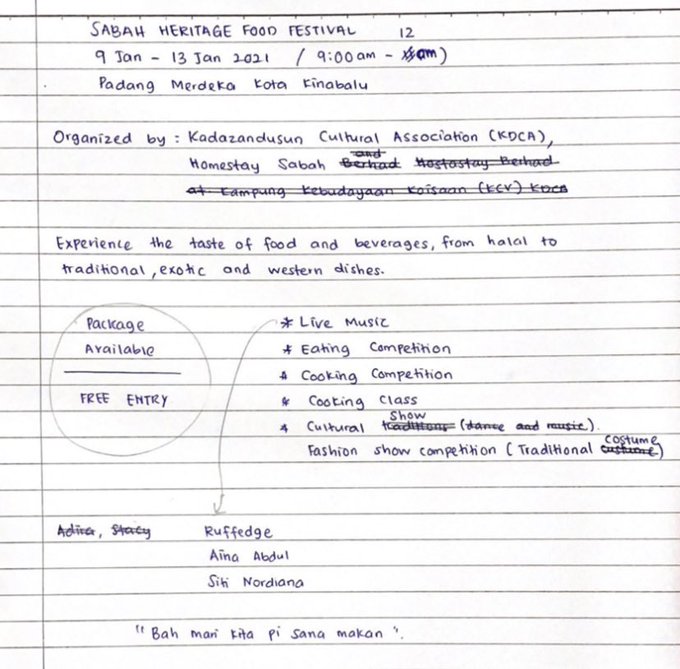 SABAH HERITAGE FOOD FESTIVAL
9 Jan - 13 Jan 2021 / 9:00am - 12 am)
Padang Merdeka Kota Kinabalu
Organized by : Kadazandusun Cultural Association (KDCA),
Homestay Sabah and Berhad Hostastay Berhad
at Kampung Kebudayaan Koisaan (KCV) KDCA
Experience the taste of food and beverages, from halal to
traditional, exotic and western dishes.
Package
Available
FREE ENTRY
* Live Music
* Eating Competition
* Cooking Competition
* Cooking Class
* Cultural traditions Show (dance and music).
Fashion show competition (Traditional costume)
Adira, Stacy
Ruffedge
Aina Abdul
Siti Nordiana
"Bah mari kita pi sana makan".